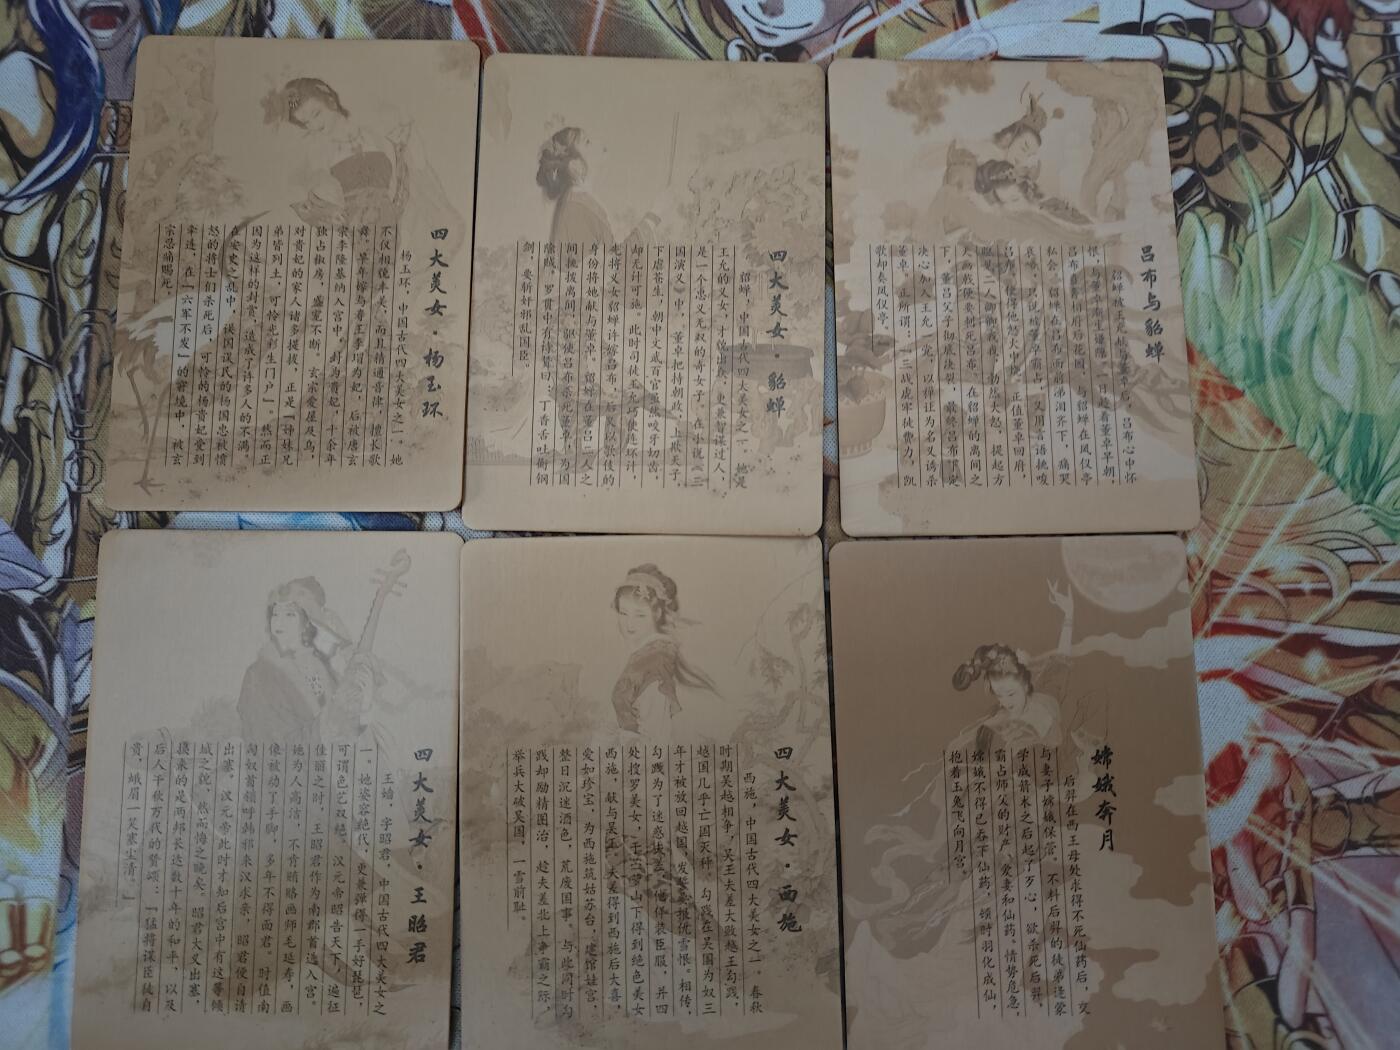 四大美女·杨玉环
杨玉环，中国古代四大美女之一。她
不仅相貌丰美，而且精通音律，擅长歌
舞。早年嫁与寿王李瑁为妃，后被唐玄
宗李隆基纳入宫中，封为贵妃，十余年
独占椒房，盛宠不断。玄宗爱屋及乌，
对贵妃的家人诸多提拔，正是「姊妹兄
弟皆列土，可怜光彩生门户」。然而正
因为这样的封赏，造成了许多人的不满，
在安史之乱中，误国谋民的杨国忠被愤
怒的将士们杀死后，可怜的杨贵妃受到
牵连，在「六军不发」的窘境中，被玄
宗忍痛赐死。
四大美女·貂蝉
貂蝉，中国古代四大美女之一。她是
王允的义女，才貌出众，更兼智谋过人，
是一个忠义无双的奇女子。在小说《三
国演义》中，董卓把持朝政，上欺天子，
下虐苍生，朝中文武百官虽然咬牙切齿，
却无计可施。此时司徒王允巧使连环计，
先将义女貂蝉许给吕布，后又以歌伎的
身份将她献与董卓。貂蝉在董吕二人之
间挑拨离间，驱使吕布杀死董卓，为国
除贼。罗贯中有诗赞曰：丁香舌吐衠钢
剑，要斩奸邪乱国臣。
吕布与貂蝉
貂蝉被王允献与董卓后，吕布心中怀
恨，与董卓渐生嫌隙。一日趁着董卓早朝，
吕布悄悄入相府后花园，与貂蝉在凤仪亭
私会。貂蝉在吕布面前涕泪齐下，痛哭
哀啼，只说被董卓霸占，又用言语挑唆
吕布，使得他怒火中烧。正值董卓回府，
眼见二人卿卿我我，勃然大怒，提起方
天画戟便要刺死吕布。在貂蝉的离间之
下，董吕父子彻底决裂，最终吕布下定
决心加入王允一党，以禅让为名义诱杀
董卓。正所谓：三战虎牢徒费力，凯
歌却奏凤仪亭。
四大美女·王昭君
王嫱，字昭君，中国古代四大美女之
一。她姿容绝代，更兼弹得一手好琵琶，
可谓色艺双绝。汉元帝昭告天下，遍征
佳丽之时，王昭君作为南郡首选入宫。
她为人高洁，不肯贿赂画师毛延寿，画
像被动了手脚，多年不得面君。时值南
匈奴首领呼韩邪来汉求亲，昭君便自请
出塞。汉元帝此时才知后宫中有这等倾
城之貌，然而悔之晚矣。昭君大义出塞，
换来的是两邦长达数十年的和平，以及
后人千秋万代的赞颂：「猛将谋臣徒自
贵，蛾眉一笑塞尘清。」
四大美女·西施
西施，中国古代四大美女之一。春秋
时期吴越相争，吴王夫差大败越王勾践，
越国几乎亡国灭种。勾践在吴国为奴三
年才被放回越国，发誓要报仇雪恨。相传，
勾践为了迷惑夫差，他佯装臣服，并四
处搜罗美女，于苎萝山下得到绝色美女
西施，献与吴王。夫差得到西施后大喜，
爱如珍宝，为西施筑姑苏台，建馆娃宫，
整日沉迷酒色，荒废国事。与此同时勾
践却励精图治，趁夫差北上争霸之际，
举兵大破吴国，一雪前耻。
嫦娥奔月
后羿在西王母处求得不死仙药后，交
与妻子嫦娥保管。不料后羿的徒弟逢蒙
学成箭术之后起了歹心，欲杀死后羿，
霸占师父的财产、爱妻和仙药。情势危急，
嫦娥不得已吞下仙药，顿时羽化成仙，
抱着玉兔飞向月宫。